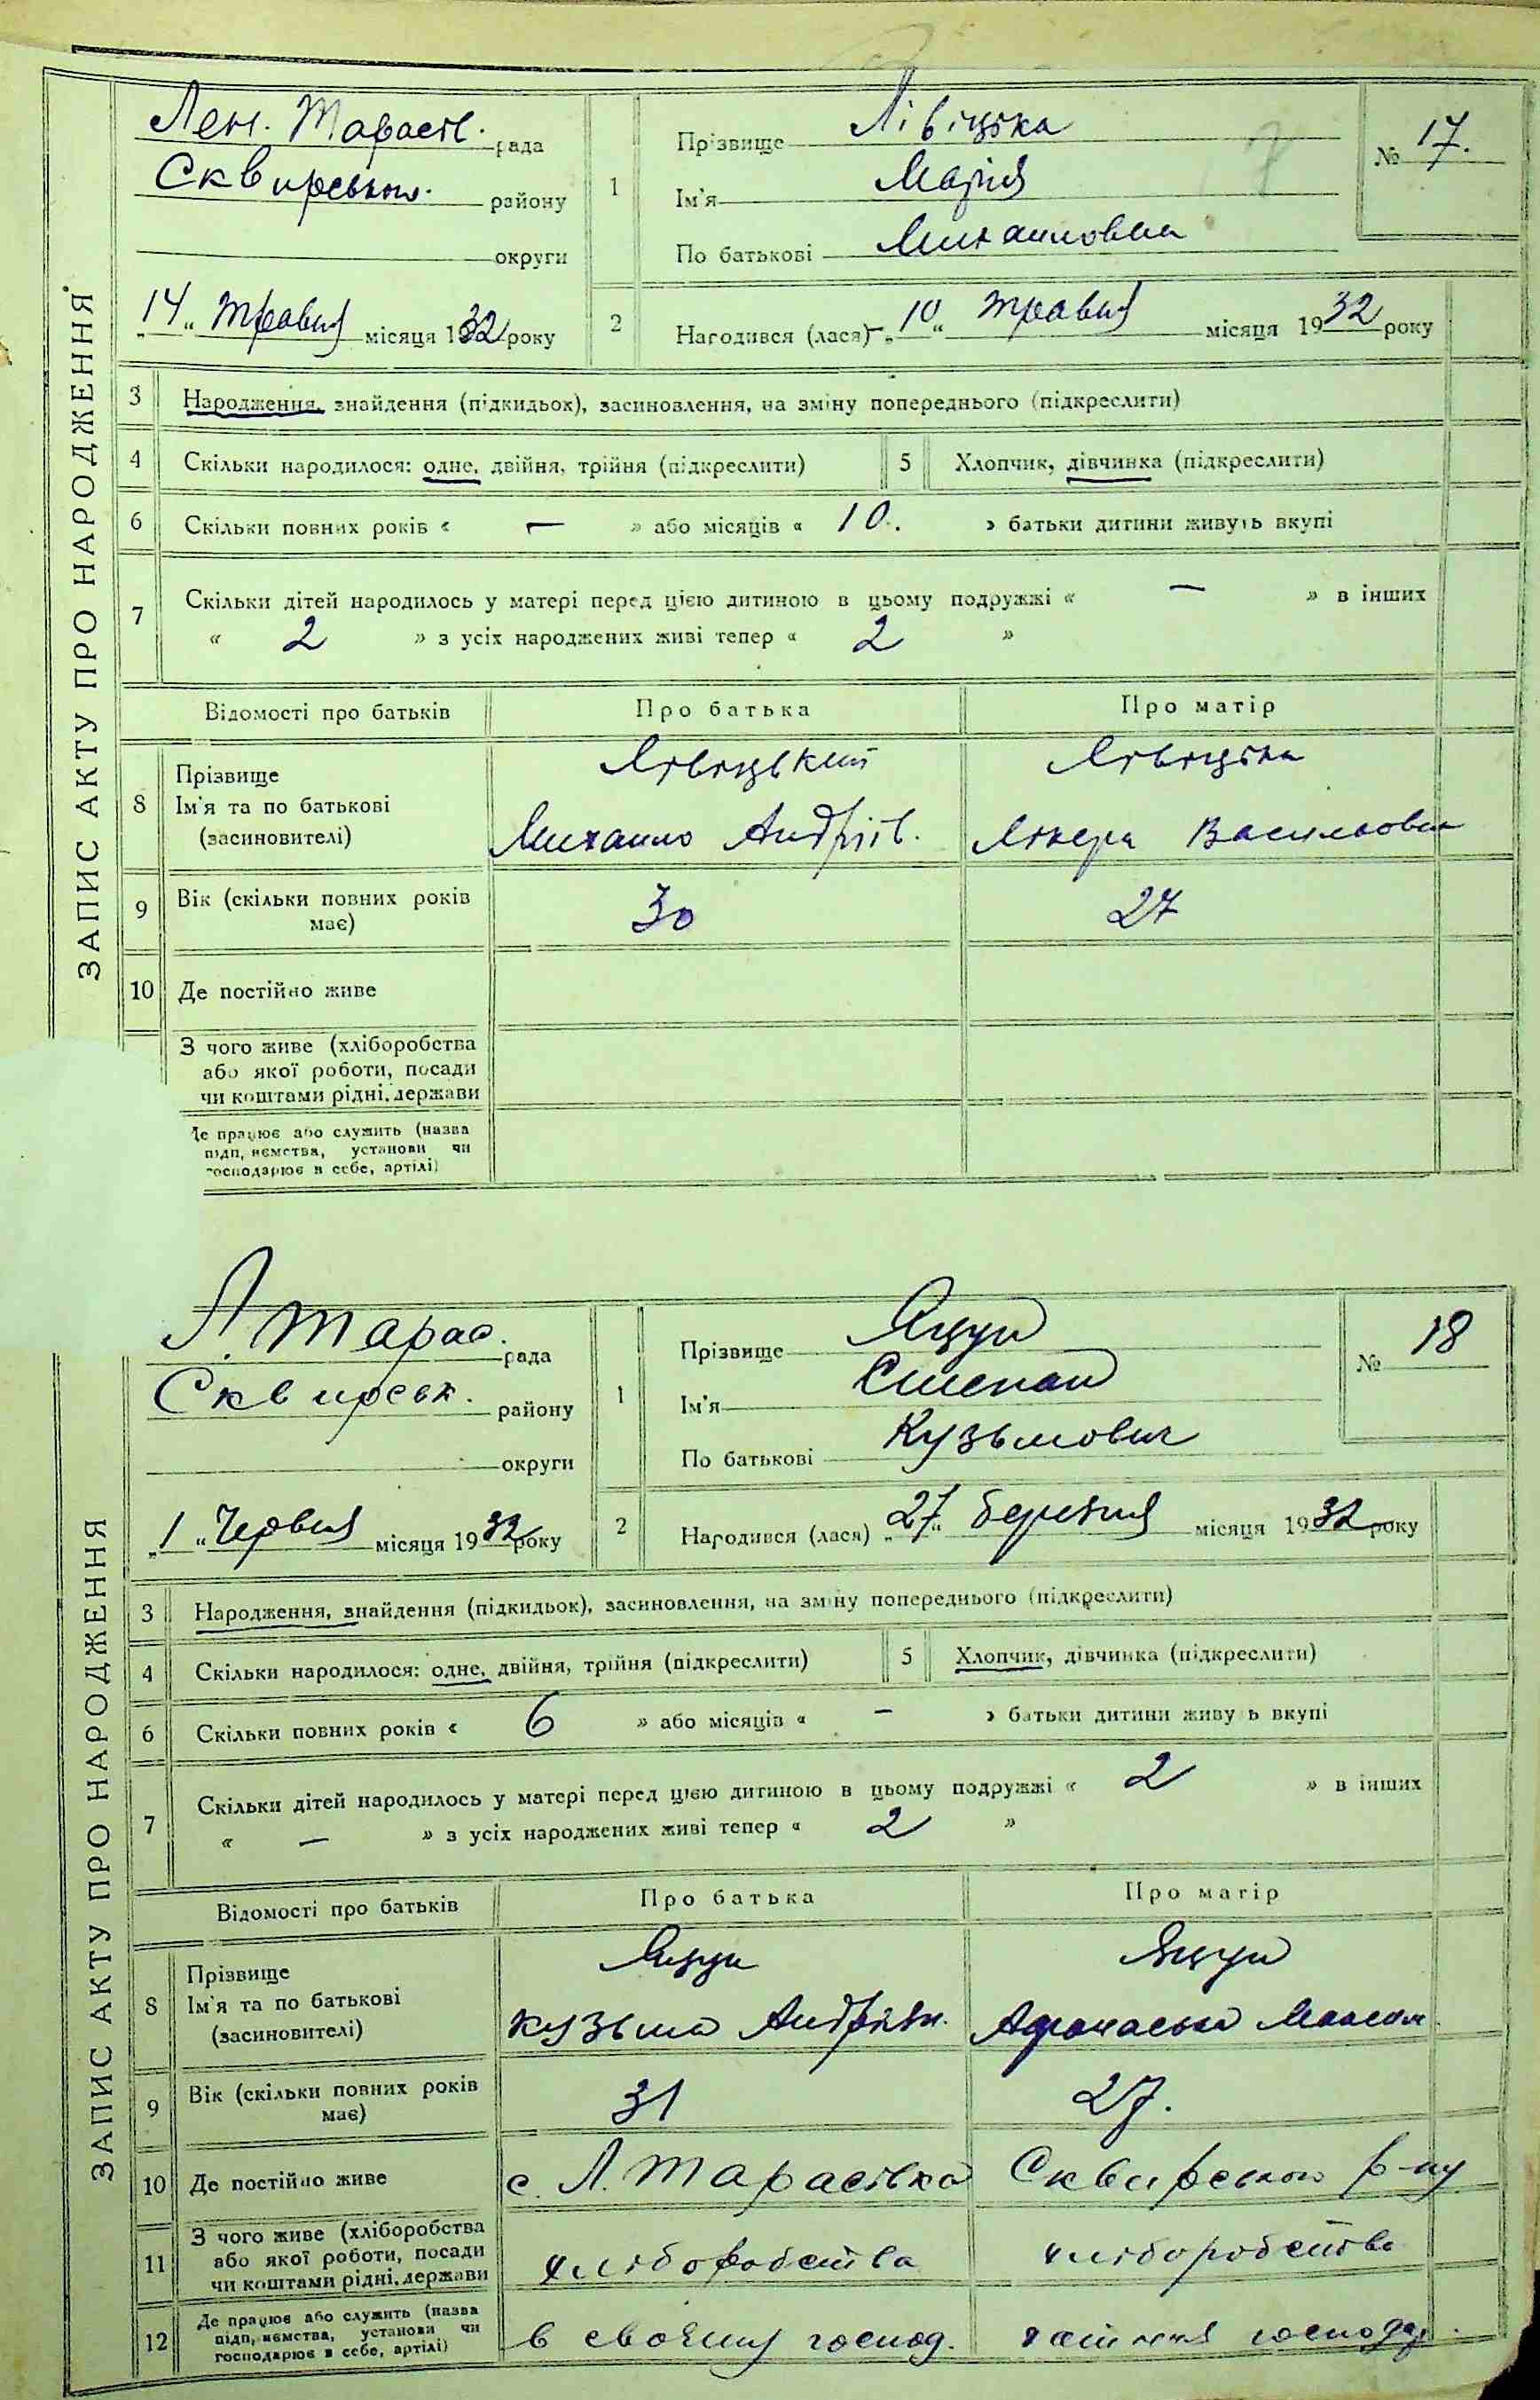 ЗАПИС АКТУ ПРО НАРОДЖЕННЯ
Лен. Тарасів. рада
Сквирського. району
округи
„14“ травня місяця 1932 року
1
Прізвище Лівіцька
Ім'я Марія
По батькові Михайловна
№ 17.
2 Народився (лася) „10“ травня місяця 1932 року
3 Народження, знайдення (підкидьок), засиновлення, на зміну попереднього (підкреслити)
4 Скільки народилося: одне, двійня, трійня (підкреслити) 5 Хлопчик, дівчинка (підкреслити)
6 Скільки повних років « — » або місяців « 10. » батьки дитини живуть вкупі
7 Скільки дітей народилось у матері перед цією дитиною в цьому подружжі « — » в інших
« 2 » з усіх народжених живі тепер « 2 »
Відомості про батьків Про батька Про матір
8 Прізвище Лівіцький Лівіцька
Ім'я та по батькові
(засиновителі) Михайло Андріїв. Лікера Васильовна
9 Вік (скільки повних років має) 30 27
10 Де постійно живе
З чого живе (хліборобства
або якої роботи, посади
чи коштами рідні, держави
Де працює або служить (назва
підприємства, установи чи
господарює в себе, артілі)
ЗАПИС АКТУ ПРО НАРОДЖЕННЯ
Л. Тарас. рада
Сквирськ. району
округи
„1“ Червня місяця 1932 року
1
Прізвище Яцун
Ім'я Степан
По батькові Кузьмович
№ 18
2 Народився (лася) „27“ березня місяця 1932 року
3 Народження, знайдення (підкидьок), засиновлення, на зміну попереднього (підкреслити)
4 Скільки народилося: одне, двійня, трійня (підкреслити) 5 Хлопчик, дівчинка (підкреслити)
6 Скільки повних років « 6 » або місяців « — » батьки дитини живуть вкупі
7 Скільки дітей народилось у матері перед цією дитиною в цьому подружжі « 2 » в інших
« — » з усіх народжених живі тепер « 2 »
Відомості про батьків Про батька Про матір
8 Прізвище Яцун Яцун
Ім'я та по батькові
(засиновителі) Кузьма Андрієв. Афанаська
9 Вік (скільки повних років має) 31 27.
10 Де постійно живе с. Л. Тарасівка Сквирського р-ну
11 З чого живе (хліборобства
або якої роботи, посади
чи коштами рідні, держави хліборобства хліборобство
12 Де працює або служить (назва
підприємства, установи чи
господарює в себе, артілі) в своєму господ. господар.